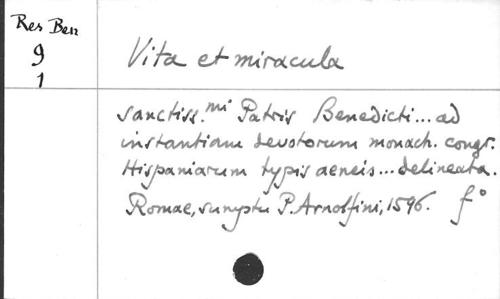 Res Ben
9
1
Vita et miracula
sanctiss.mi Patris Benedicti... ad
instantiam devotorum monach. congr.
Hispaniarum typis aeneis... delineata.
Romae, sumptu P. Arnolfini, 1596. f°